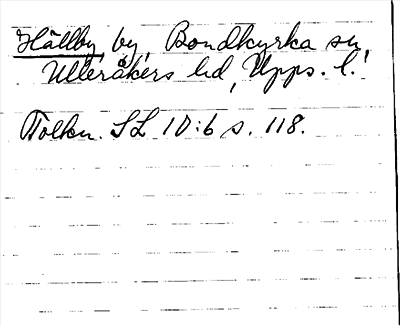 Hällby by, Bondkyrka sn,
Ulleråkers hd, Upps. l.
Tolkn. SL 10:6 s. 118.